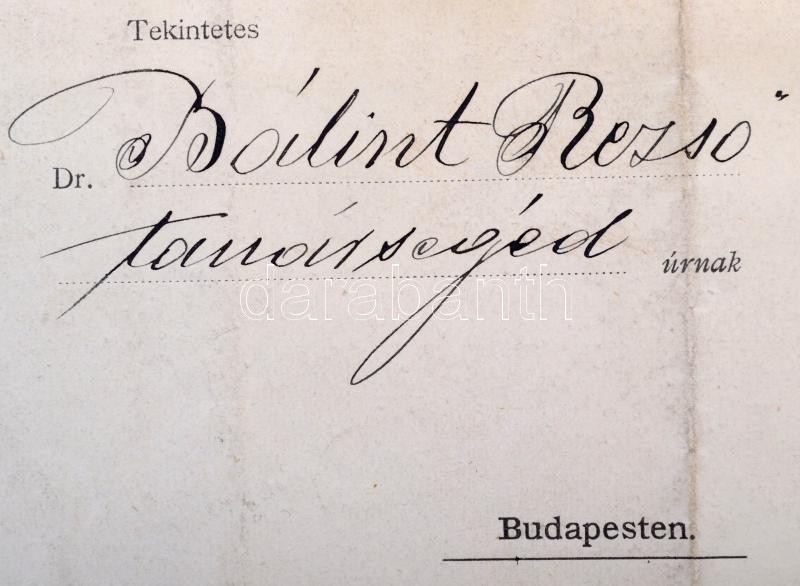 Tekintetes
Dr. Bálint Rezső
tanársegéd úrnak
darabanth
Budapesten.